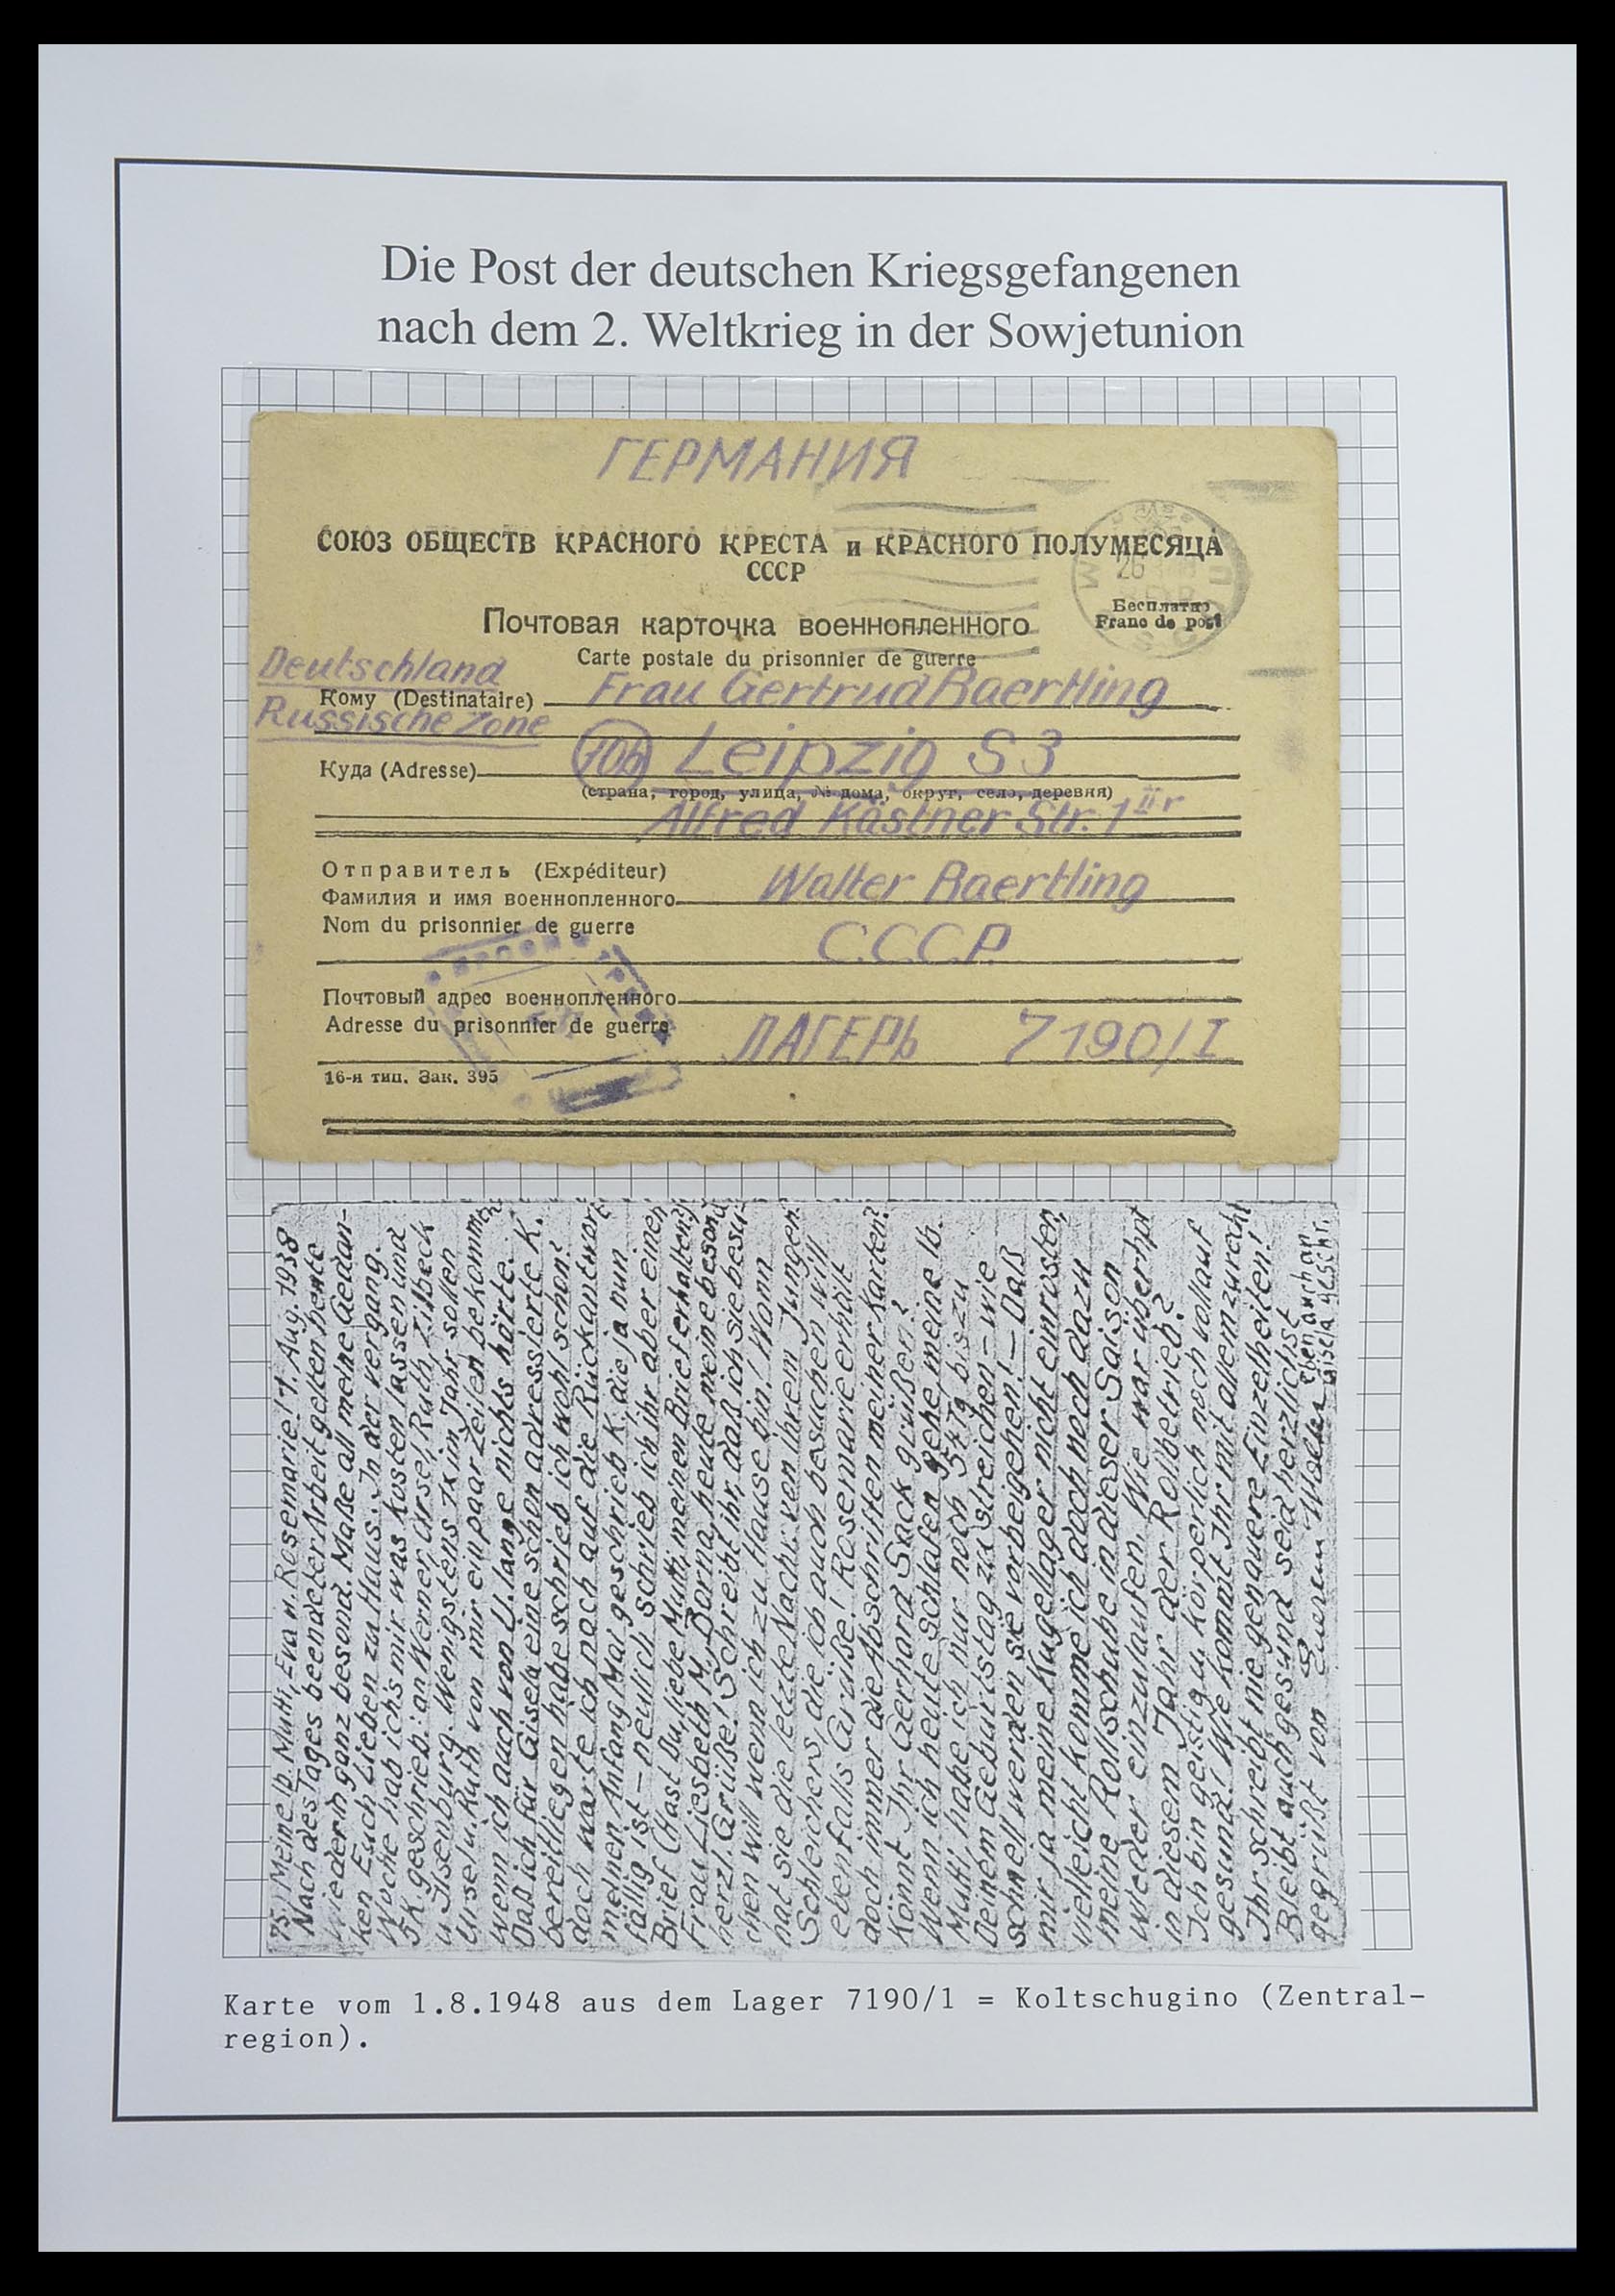 Die Post der deutschen Kriegsgefangenen
nach dem 2. Weltkrieg in der Sowjetunion
ГЕРМАНИЯ
СОЮЗ ОБЩЕСТВ КРАСНОГО КРЕСТА и КРАСНОГО ПОЛУМЕСЯЦА
СССР
26
Бесплатно
Franc de post
Почтовая карточка военнопленного
Carte postale du prisonnier de guerre
Deutschland
Кому (Destinataire) Frau Gertrud Baertling
Russische Zone
Куда (Adresse) (10b) Leipzig S3
(страна, город, улица, № дома, округ, село, деревня)
Alfred Kästner Str. 1 IIr
Отправитель (Expéditeur)
Фамилия и имя военнопленного Walter Baertling
Nom du prisonnier de guerre
С.С.С.Р.
Почтовый адрес военнопленного
Adresse du prisonnier de guerre ЛАГЕРЬ 7190/I
16-я тип. Зак. 395
75.) Meine lb. Mutti, Eva u. Rosemarie! 1. Aug.
Nach des Tages beendeter Arbeit gelten heute
wiederin ganz besond. Maße all meine Gedan-
ken Euch Lieben zu Haus. In der vergang.
Woche hab ich's mir was kosten lassen und
5 K. geschrieb.: an Werner, Ursel, Ruth, Zilbeck
u. Ilsenburg. Wenigstens 1x im Jahr sollen
Ursel u. Ruth von mir ein paar Zeilen bekommen
wenn ich auch von U. lange nichts hörte.
Daß ich für Gisela eine schon adressierte K.
bereitliegen habe schrieb ich wohl schon?
doch warte ich noch auf die Rückantwort
meinen Anfang Mai geschrieb. K., die ja nun
fällig ist – neulich schrieb ich ihr aber einen
Brief (Hast Du, liebe Mutti, meinen Brief erhalten?)
Frau Liesbeth M., Borna, heute meine besond.
herzl. Grüße! Schreibt ihr, daß ich sie besu-
chen will wenn ich zu Hause bin! Wann
hat sie die letzte Nachr. von ihrem Jungen?
Schleichers, die ich auch besuchen will
ebenfalls Grüße! Rosemarie erhält
doch immer die Abschriften meiner Karten?
Könnt Ihr Gerhard Sack grüßen?
Wenn ich heute schlafen gehe, meine lb.
Mutti, habe ich nur noch bis zu
Deinem Geburtstag zu streichen – wie
schnell werden sie vorbeigehen! – Daß
mir ja meine Kugellager nicht einrosten,
vielleicht komme ich doch noch dazu
meine Rollschuhe in dieser Saison
wieder einzulaufen. Wie war überhpt
in diesem Jahr der Rollbetrieb?
Ich bin geistig u. körperlich noch vollauf
gesund! Wie kommt Ihr mit allem zurecht
Ihr schreibt nie genauere Einzelheiten!
Bleibt auch gesund und seid herzlichst
gegrüßt von Eurem Walter
eben auch an
Gisela geschr.
Karte vom 1.8.1948 aus dem Lager 7190/1 = Koltschugino (Zentral-
region).